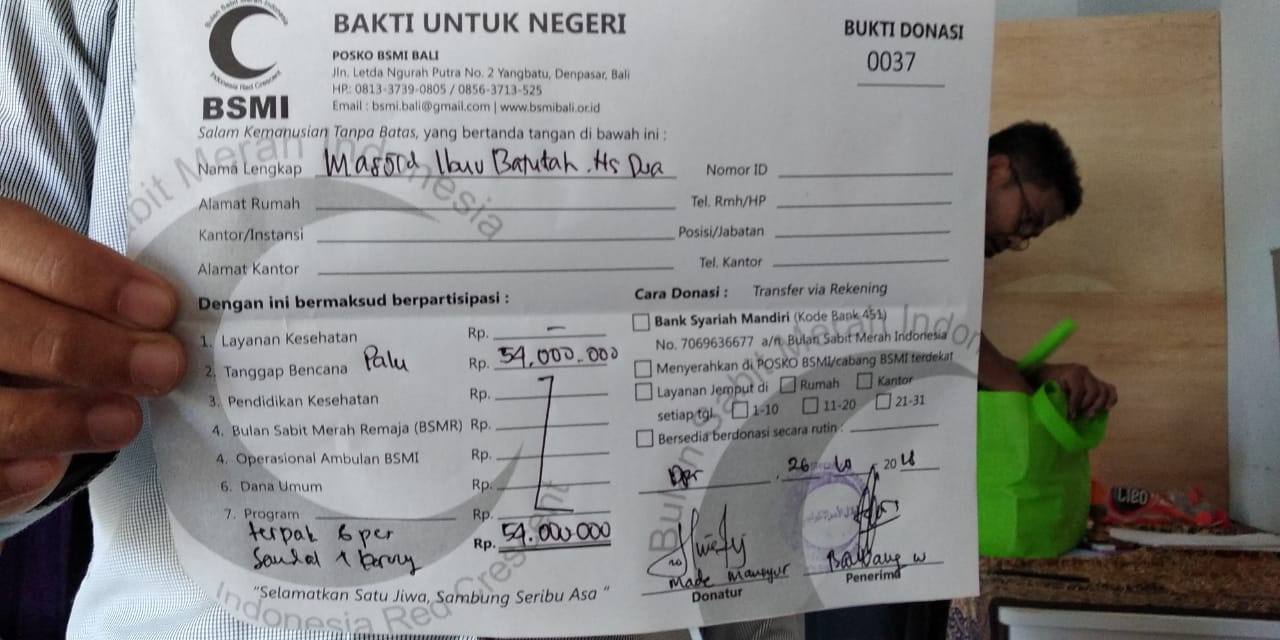 BAKTI UNTUK NEGERI
BUKTI DONASI
0037
Bulan Sabit Merah Indonesia
Indonesia Red Crescent
BSMI
POSKO BSMI BALI
Jln. Letda Ngurah Putra No. 2 Yangbatu, Denpasar, Bali
HP: 0813-3739-0805 / 0856-3713-525
Email : bsmi.bali@gmail.com | www.bsmibali.or.id
Salam Kemanusian Tanpa Batas, yang bertanda tangan di bawah ini :
Nama Lengkap Masjid Ibnu Batutah
Nomor ID
Alamat Rumah
Tel. Rmh/HP
Kantor/Instansi
Posisi/Jabatan
Alamat Kantor
Tel. Kantor
Dengan ini bermaksud berpartisipasi :
1. Layanan Kesehatan Rp. –
2. Tanggap Bencana Palu Rp. 54,000.000
3. Pendidikan Kesehatan Rp.
4. Bulan Sabit Merah Remaja (BSMR) Rp.
4. Operasional Ambulan BSMI Rp.
6. Dana Umum Rp.
7. Program Rp.
terpal 6 per
Sandal 1 karung
Rp. 54.000.000
"Selamatkan Satu Jiwa, Sambung Seribu Asa "
Cara Donasi : Transfer via Rekening
Bank Syariah Mandiri (Kode Bank 451)
No. 7069636677 a/n Bulan Sabit Merah Indonesia
Menyerahkan di POSKO BSMI/cabang BSMI terdekat
Layanan Jemput di Rumah Kantor
setiap tgl 1-10 11-20 21-31
Bersedia berdonasi secara rutin :
Dpr, 26 10 2018
Made Mansyur
Donatur
Bambang w
Penerima
Bulan Sabit Merah Indonesia
Indonesia Red Crescent
CLEO